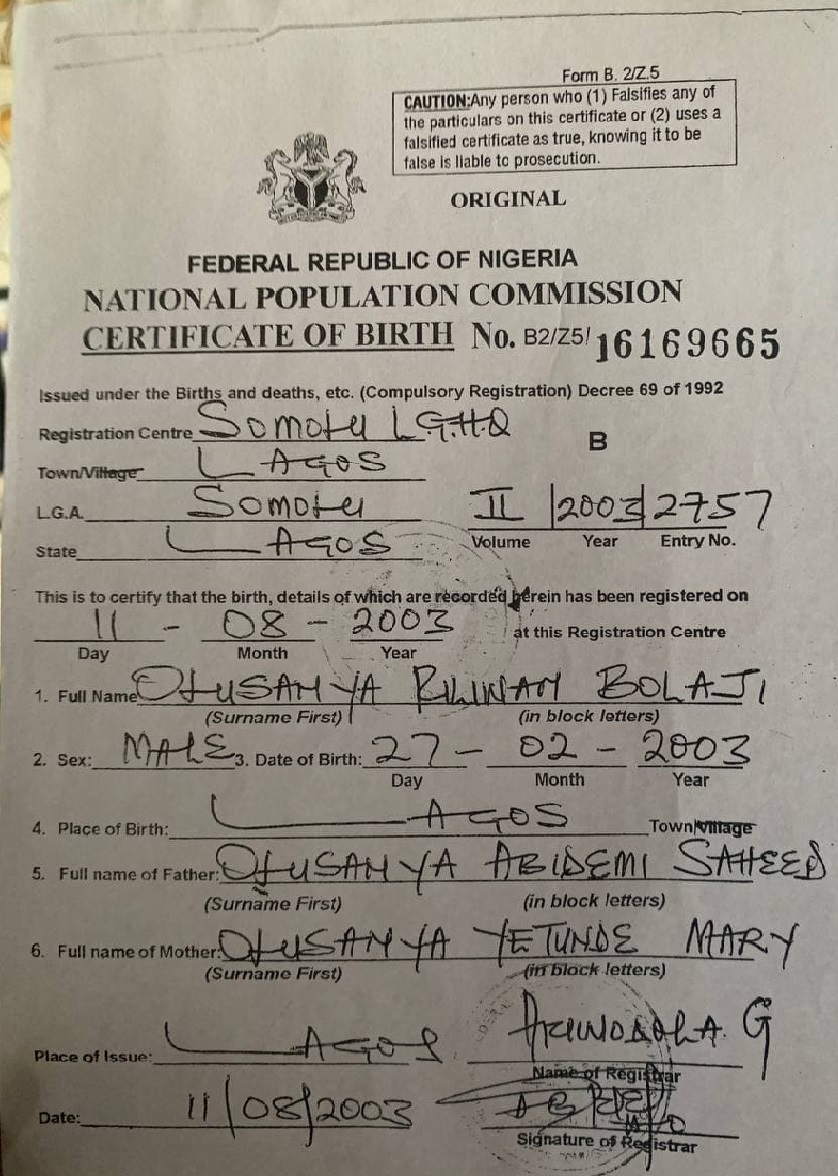 Form B. 2/Z.5
CAUTION:Any person who (1) Falsifies any of
the particulars on this certificate or (2) uses a
falsified certificate as true, knowing it to be
false is liable to prosecution.
ORIGINAL
FEDERAL REPUBLIC OF NIGERIA
NATIONAL POPULATION COMMISSION
CERTIFICATE OF BIRTH No. B2/Z5/ 16169665
Issued under the Births and deaths, etc. (Compulsory Registration) Decree 69 of 1992
Registration Centre Somolu L.G.H.Q
B
Town/Village LAGOS
L.G.A. Somolu II 2003 2757
Volume Year Entry No.
State LAGOS
This is to certify that the birth, details of which are recorded herein has been registered on
11 - 08 - 2003 at this Registration Centre
Day Month Year
1. Full Name OLUSANYA RILIWAN BOLAJI
(Surname First) (in block letters)
2. Sex: MALE 3. Date of Birth: 27 - 02 - 2003
Day Month Year
4. Place of Birth: LAGOS Town/Village
5. Full name of Father: OLUSANYA ABIDEMI SAHEED
(Surname First) (in block letters)
6. Full name of Mother: OLUSANYA YETUNDE MARY
(Surname First) (in block letters)
Place of Issue: LAGOS G
Name of Registrar
Date: 11/08/2003
Signature of Registrar